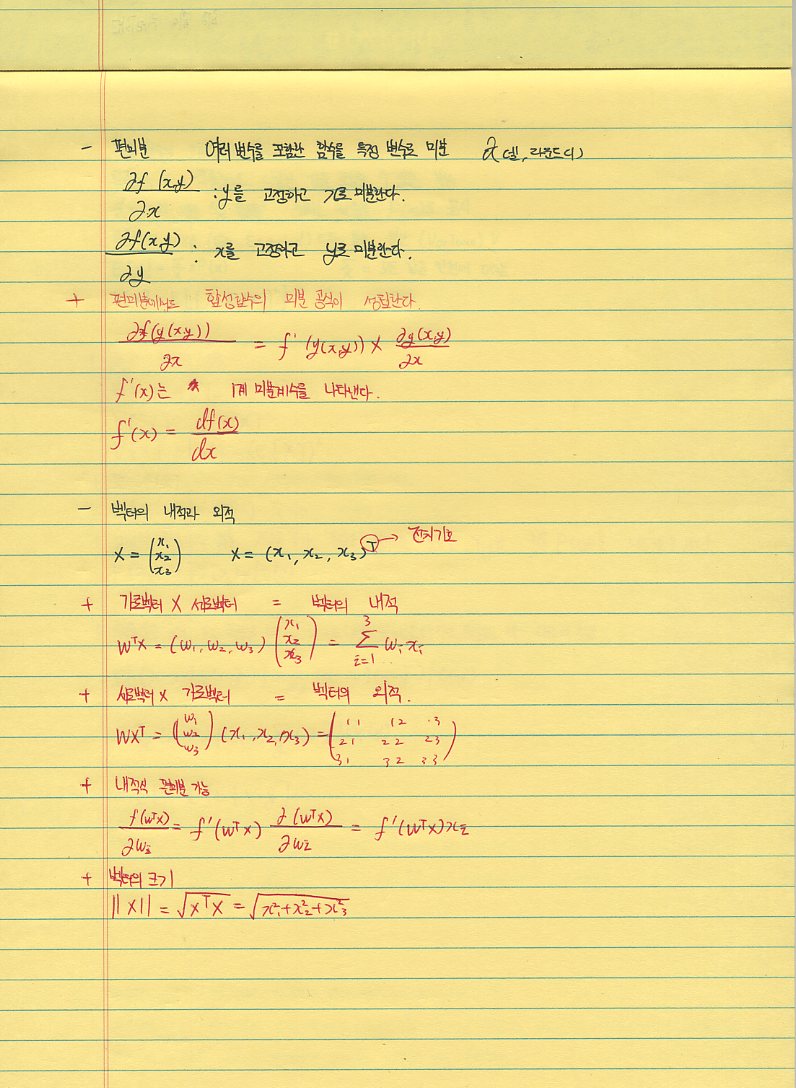 - 편미분 여러 변수를 포함한 함수를 특정 변수로 미분 ∂(델, 라운드디)
∂f(x,y)/∂x : y를 고정하고 x로 미분한다.
∂f(x,y)/∂y : x를 고정하고 y로 미분한다.
+ 편미분에서도 합성함수의 미분 공식이 성립한다.
∂f(y(x,y))/∂x = f'(y(x,y)) × ∂y(x,y)/∂x
f'(x)는 1계 미분계수를 나타낸다.
f'(x) = df(x)/dx
- 벡터의 내적과 외적
X = (x₁ x₂ x₃) X = (x₁, x₂, x₃)ᵀ → 전치기호
+ 가로벡터 X 세로벡터 = 벡터의 내적
WᵀX = (w₁, w₂, w₃) (x₁ x₂ x₃) = ∑ᵢ₌₁³ wᵢxᵢ
+ 세로벡터 x 가로벡터 = 벡터의 외적.
WXᵀ = (w₁ w₂ w₃) (x₁, x₂, x₃) = (11 12 13 21 22 23 31 32 33)
+ 내적식 편미분 가능
f(wᵀx)/∂wᵢ = f'(wᵀx) ∂(wᵀx)/∂wᵢ = f'(wᵀx)xᵢ
+ 벡터의 크기
||X|| = √(XᵀX) = √(x₁²+x₂²+x₃²)